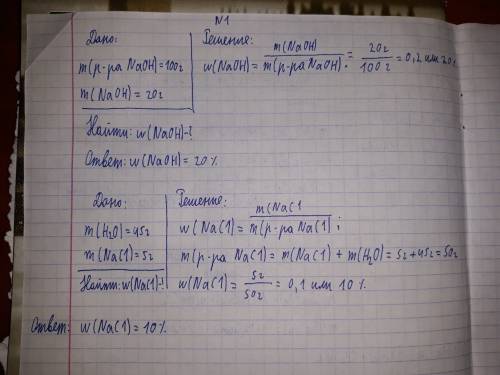 N1
Дано:
Решение:
m(р-ра NaOH)=100г
w(NaOH)= m(NaOH) / m(р-ра NaOH) = 20г / 100г = 0,2 или 20%
m(NaOH)=20г
Найти: w(NaOH)-?
Ответ: w(NaOH)=20%
Дано:
Решение:
m(H2O)=45г
w(NaCl)= m(NaCl / m(р-ра NaCl) ;
m(NaCl)=5г
m(р-ра NaCl)= m(NaCl)+m(H2O)=5г+45г=50г
Найт: w(NaCl)-?
w(NaCl)= 5г / 50г = 0,1 или 10%
Ответ: w(NaCl)=10%